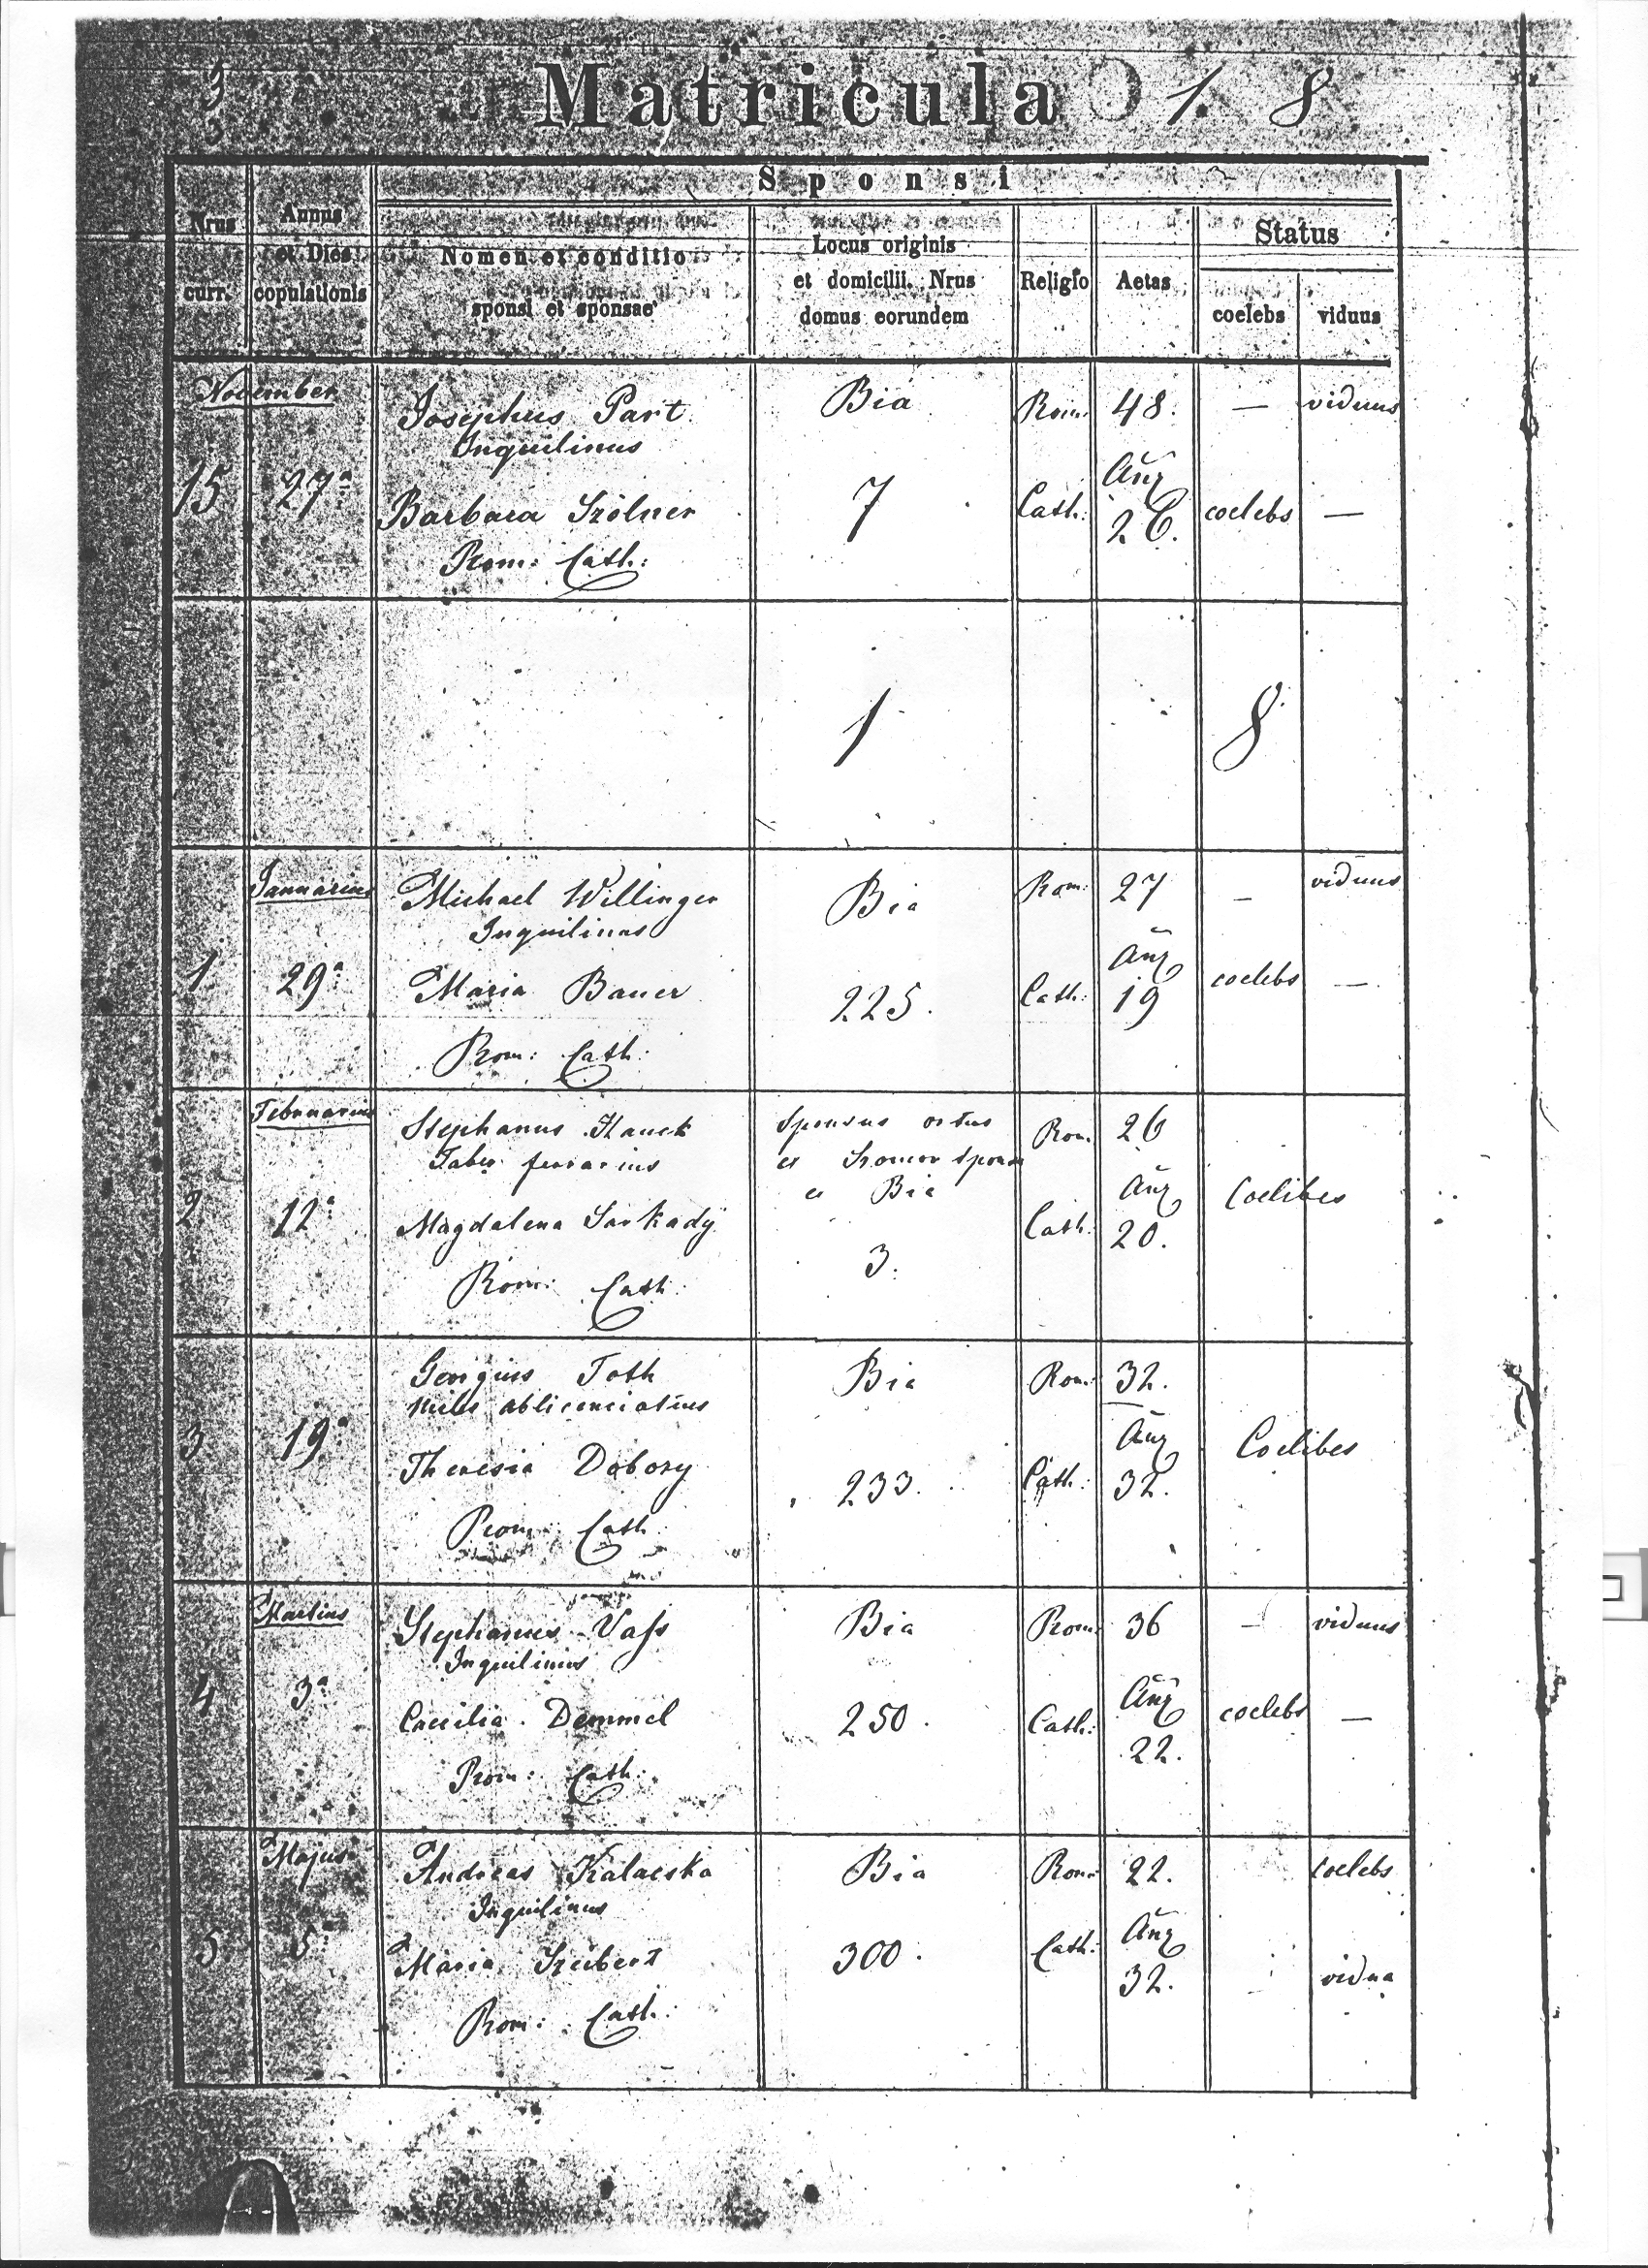 3 Matricula 1. 8
Sponsi
Nrus curr.
Annus et Dies copulationis
Nomen et conditio sponsi et sponsae
Locus originis et domicilii. Nrus domus eorundem
Religio
Aetas
Status
coelebs
viduus
November
Josephus Part Bia Rom: 48. — viduus
Inquilinus
15 27a 7 Cath: Añg
Barbara Szölner 26. coelebs —
Rom: Cath:
1 8
Januarius Michael Willinger Bia Rom: 27 — viduus
Inquilinus
1 29a Añg
Maria Bauer 225. Cath: 19 coelebs —
Rom: Cath:
Februarius Stephanus Hauck Sponsus ortus Rom. 26
Faber ferrarius ex Szomor Sponsa
2 12a ex Bia Añg Coelibes
Magdalena Sárkadÿ 3. Cath: 20.
Rom: Cath:
Georgius Toth Bia Rom: 32.
Miles ablicenciatus
3 19a Añg Coelibes
Theresia Dobosy 233. Cath: 32.
Rom: Cath:
Martius Stephanus Vass Bia Rom: 36 — viduus
Inquilinus
4 3a Añg
Caecilia Demmel 250. Cath: 22. coelebs —
Rom: Cath:
Majus Andreas Kalacska Bia Rom: 22. coelebs
Inquilinus
5 5a Añg
Maria Szeibert 300. Cath: 32. vidua
Rom: Cath: